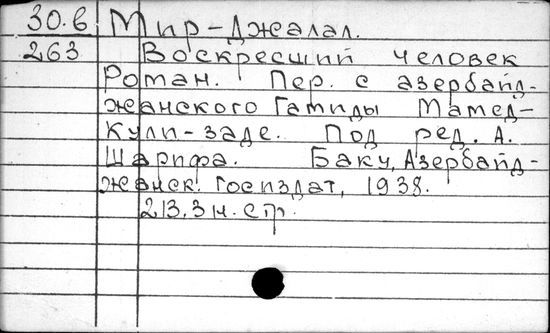 30.6 Мир-Джалал.
263 Воскресший человек
Роман. Пер. с азербайд-
жанского Гамиды Мамед-
Кули-заде. Под ред. А.
Шарифа. Баку, Азербайд-
жанск. Госиздат, 1938.
213,3 н. стр.